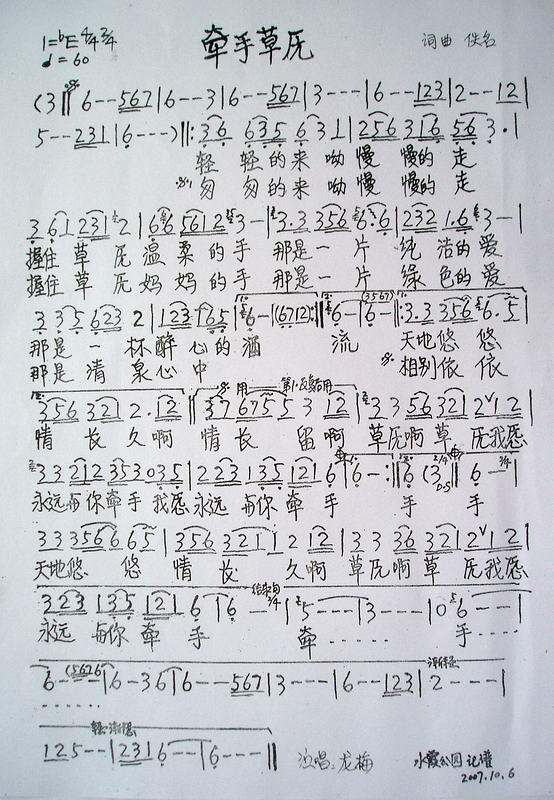 1=ᵇE 4/4 2/4 牵手草原 词曲 佚名
♩=60
(3 ‖ 6 - - 567 | 6 - - 3 | 6 - - 567 | 3 - - - | 6 - - 123 | 2 - - 12 |
5 - - 231 | 6 - - - ) ‖: 36 635 6 31 | 256 316 56 3· |
轻 轻的来 呦 慢 慢的 走
匆 匆的来 呦 慢 慢的 走
3 61 231 2 | 66 5612 3 - | 3·3 356 6·6 | 232 1·6 3 - |
握住 草 原 温 柔 的 手 那是一 片 纯 洁的 爱
握住 草 原 妈 妈 的 手 那是一 片 绿 色的 爱
335 623 2 | 123 165 | 6 - (6712) :‖ 6 - | 6 - (3567) ‖: 3·3 356 6·5 |
那是 一 杯醉 心的 酒 流 天地 悠 悠
那是 清 泉心 中 相别 依 依
356 321 2· 12 ‖ 37 675 5 3 12 | 33 56 321 2 12 |
情 长 久啊 情 长 留啊 草原啊 草 原我愿
33 212 353 035 | 223 135 121 6 | 6 - :‖ 6 (3 6 -
永远与你牵手 我愿 永远 与你 牵 手 手 手
333566 65 | 356 321 2 12 | 33 36 321 2 12 |
天地悠 悠 情 长 久啊 草原啊 草 原我愿
结束句
323 135 121 6 | 6 - | 5 - - - | 3 - - - | 0 6 - - |
永远 与你 牵 手 牵 …… 手 ……
6 - - (5676 | 6 - 36 | 6 - - 567 | 3 - - - | 6 - - 123 | 2 - - - |
……
125 - - | 231 6 - - | 6 - - - ‖ 演唱:龙梅 水霞公园 记谱
2007.10.6